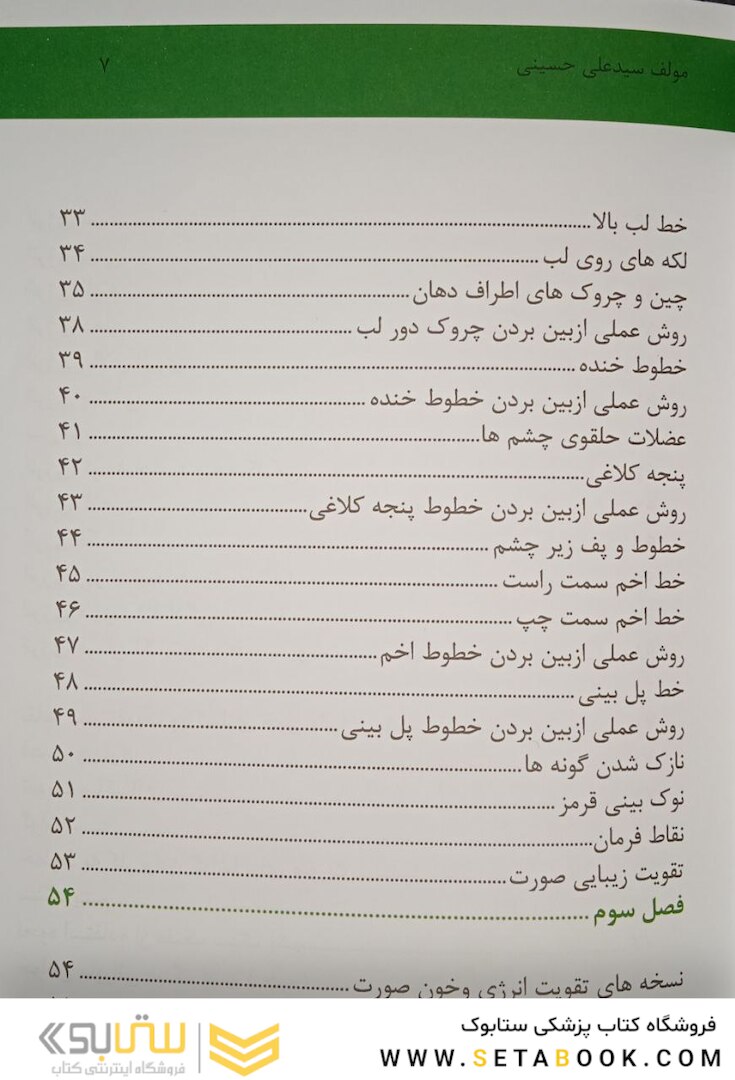 مولف سیدعلی حسینی ۷
خط لب بالا ۳۳
لکه های روی لب ۳۴
چین و چروک های اطراف دهان ۳۵
روش عملی ازبین بردن چروک دور لب ۳۸
خطوط خنده ۳۹
روش عملی ازبین بردن خطوط خنده ۴۰
عضلات حلقوی چشم ها ۴۱
پنجه کلاغی ۴۲
روش عملی ازبین بردن خطوط پنجه کلاغی ۴۳
خطوط و پف زیر چشم ۴۴
خط اخم سمت راست ۴۵
خط اخم سمت چپ ۴۶
روش عملی ازبین بردن خطوط اخم ۴۷
خط پل بینی ۴۸
روش عملی ازبین بردن خطوط پل بینی ۴۹
نازک شدن گونه ها ۵۰
نوک بینی قرمز ۵۱
نقاط فرمان ۵۲
تقویت زیبایی صورت ۵۳
فصل سوم ۵۴
نسخه های تقویت انرژی وخون صورت ۵۴
فروشگاه کتاب پزشکی ستابوک
WWW.SETABOOK.COM
ستابوک
فروشگاه اینترنتی کتاب